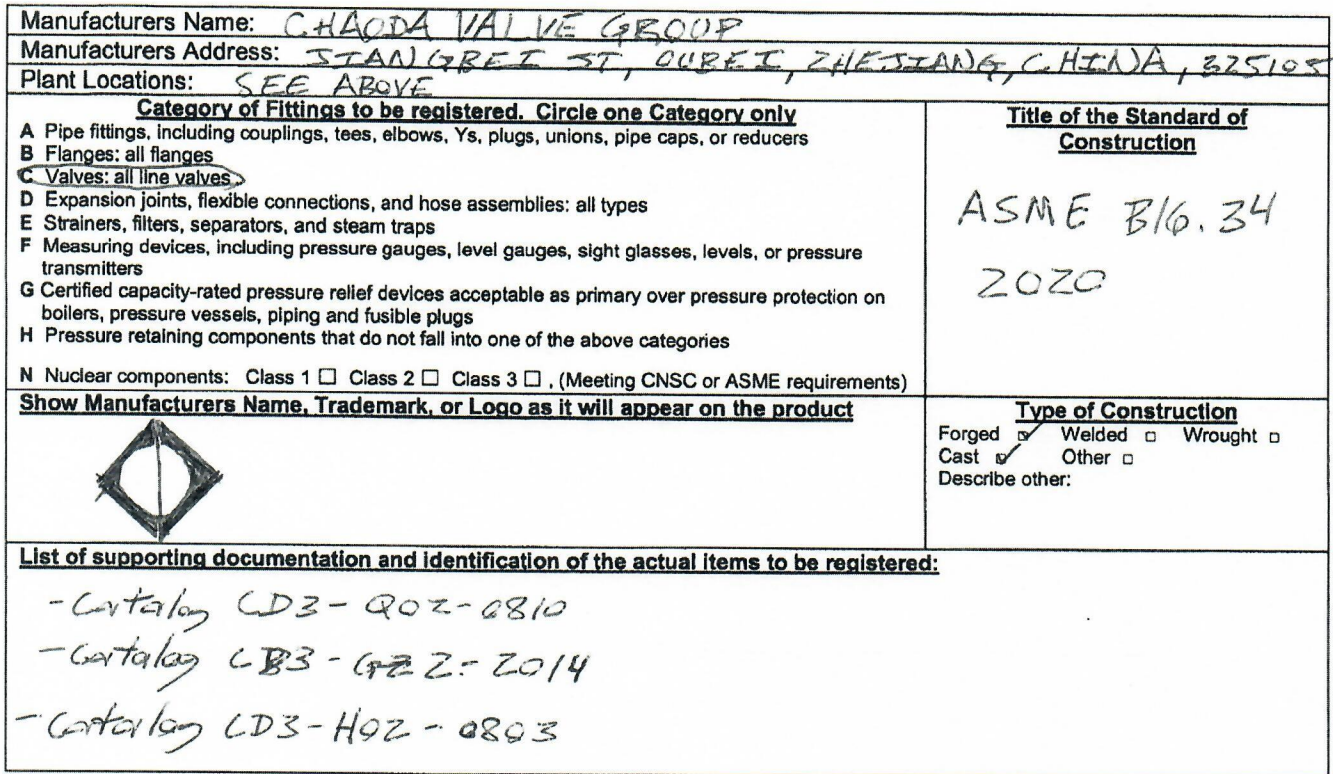 Manufacturers Name: CHAODA VALVE GROUP
Manufacturers Address: JIANGBEI ST, OUBEI, ZHEJIANG, CHINA, 325105
Plant Locations: SEE ABOVE
Category of Fittings to be registered. Circle one Category only
A Pipe fittings, including couplings, tees, elbows, Ys, plugs, unions, pipe caps, or reducers
B Flanges: all flanges
C Valves: all line valves
D Expansion joints, flexible connections, and hose assemblies: all types
E Strainers, filters, separators, and steam traps
F Measuring devices, including pressure gauges, level gauges, sight glasses, levels, or pressure
transmitters
G Certified capacity-rated pressure relief devices acceptable as primary over pressure protection on
boilers, pressure vessels, piping and fusible plugs
H Pressure retaining components that do not fall into one of the above categories
N Nuclear components: Class 1 ☐ Class 2 ☐ Class 3 ☐ , (Meeting CNSC or ASME requirements)
Title of the Standard of
Construction
ASME B16.34
2020
Show Manufacturers Name, Trademark, or Logo as it will appear on the product
Type of Construction
Forged ☑ Welded ☐ Wrought ☐
Cast ☑ Other ☐
Describe other:
List of supporting documentation and identification of the actual items to be registered:
- Catalog CD3-Q02-0810
- Catalog CD3-G22-2014
- Catalog CD3-H02-0803